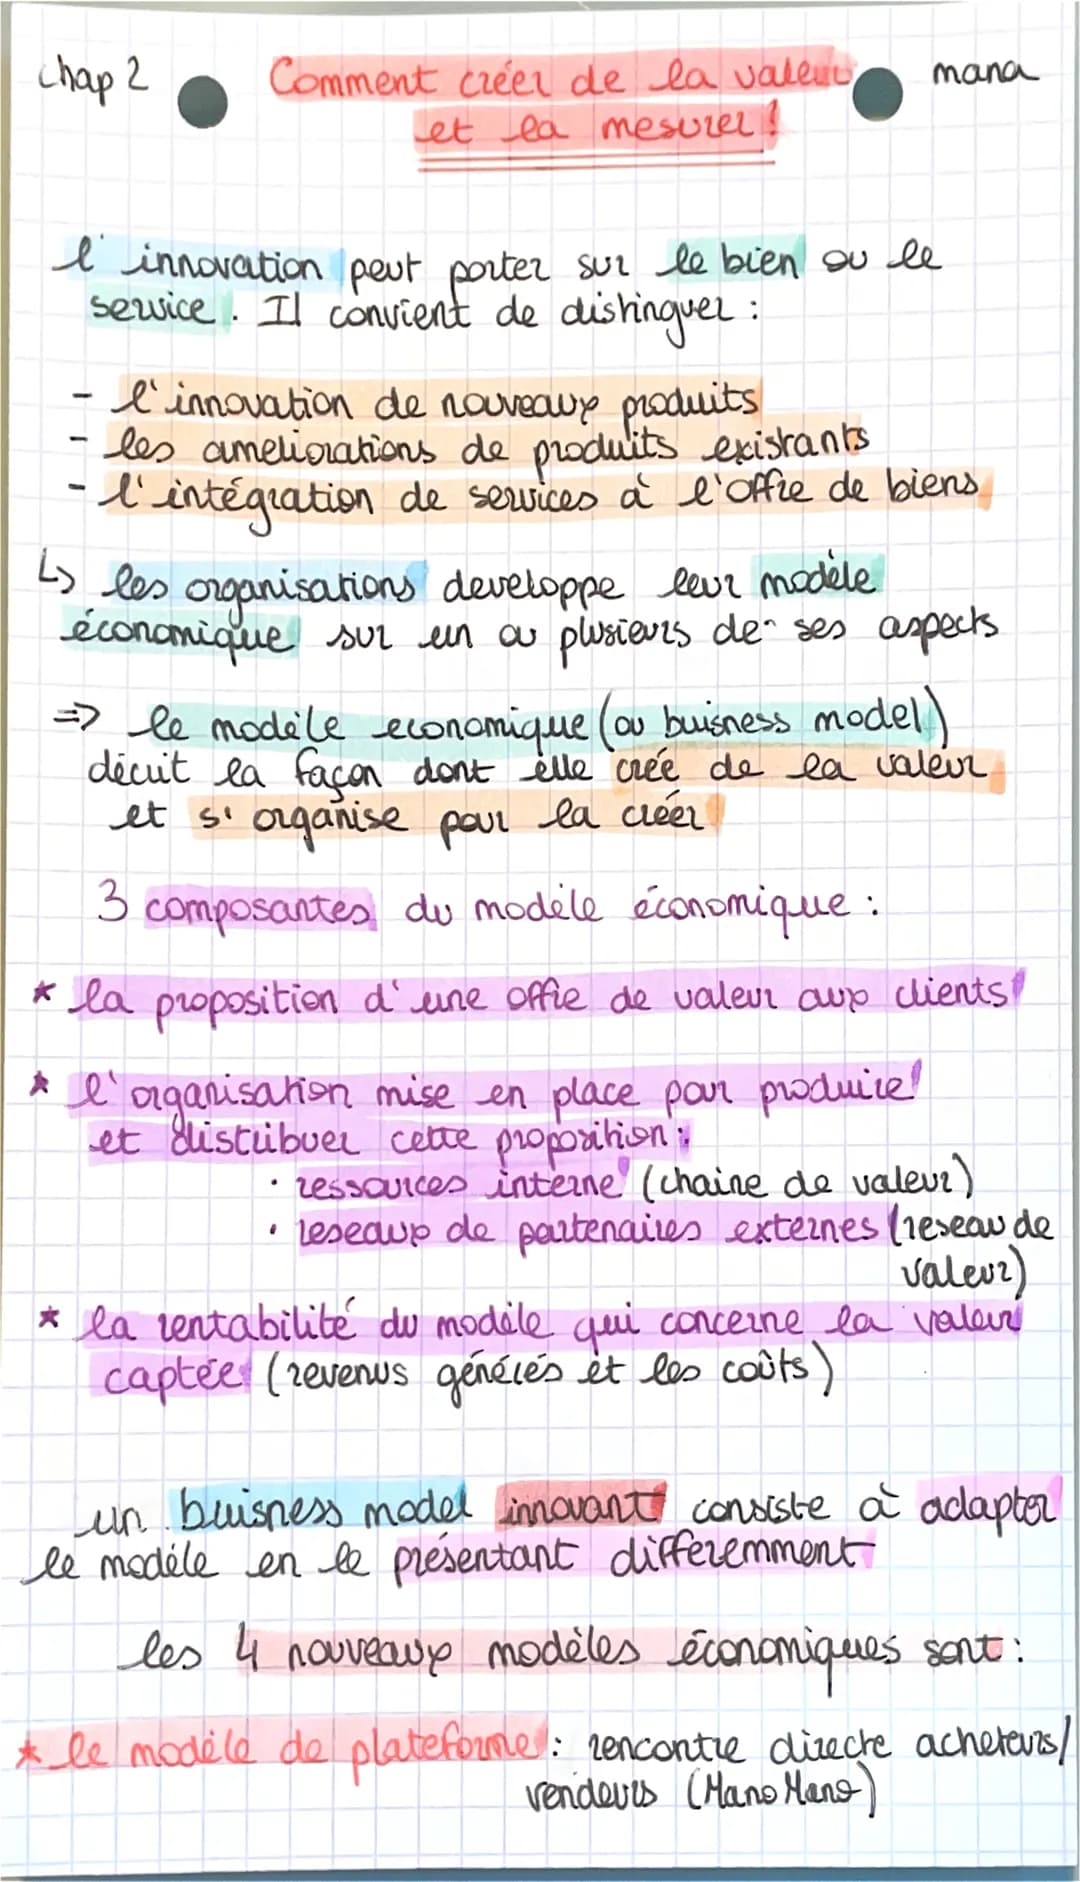 chap 2 Comment créer de la valeur mana
et la mesurer !
l'innovation peut porter sur le bien ou le
service. Il convient de distinguer :
- l'innovation de nouveaux produits
- les ameliorations de produits existants
- l'intégration de services à l'offre de biens
↳ les organisations developpe leur modèle
économique sur un ou plusieurs de ses aspects
=> le modèle economique (ou buisness model)
décrit la façon dont elle créé de la valeur
et s'organise pour la créer
3 composantes du modèle économique :
* la proposition d'une offre de valeur aux clients
* l'organisation mise en place pour produire
et distribuer cette proposition :
• ressources interne (chaine de valeur)
• reseaux de partenaires externes (reseau de
valeur)
* la rentabilité du modèle qui concerne la valeur
captée (revenus générés et les coûts)
un buisness model innovant consiste à adapter
le modéle en le présentant différemment
les 4 nouveaux modèles économiques sont :
* le modéle de plateforme : rencontre directe acheteurs/
vendeurs (Mano Mano)